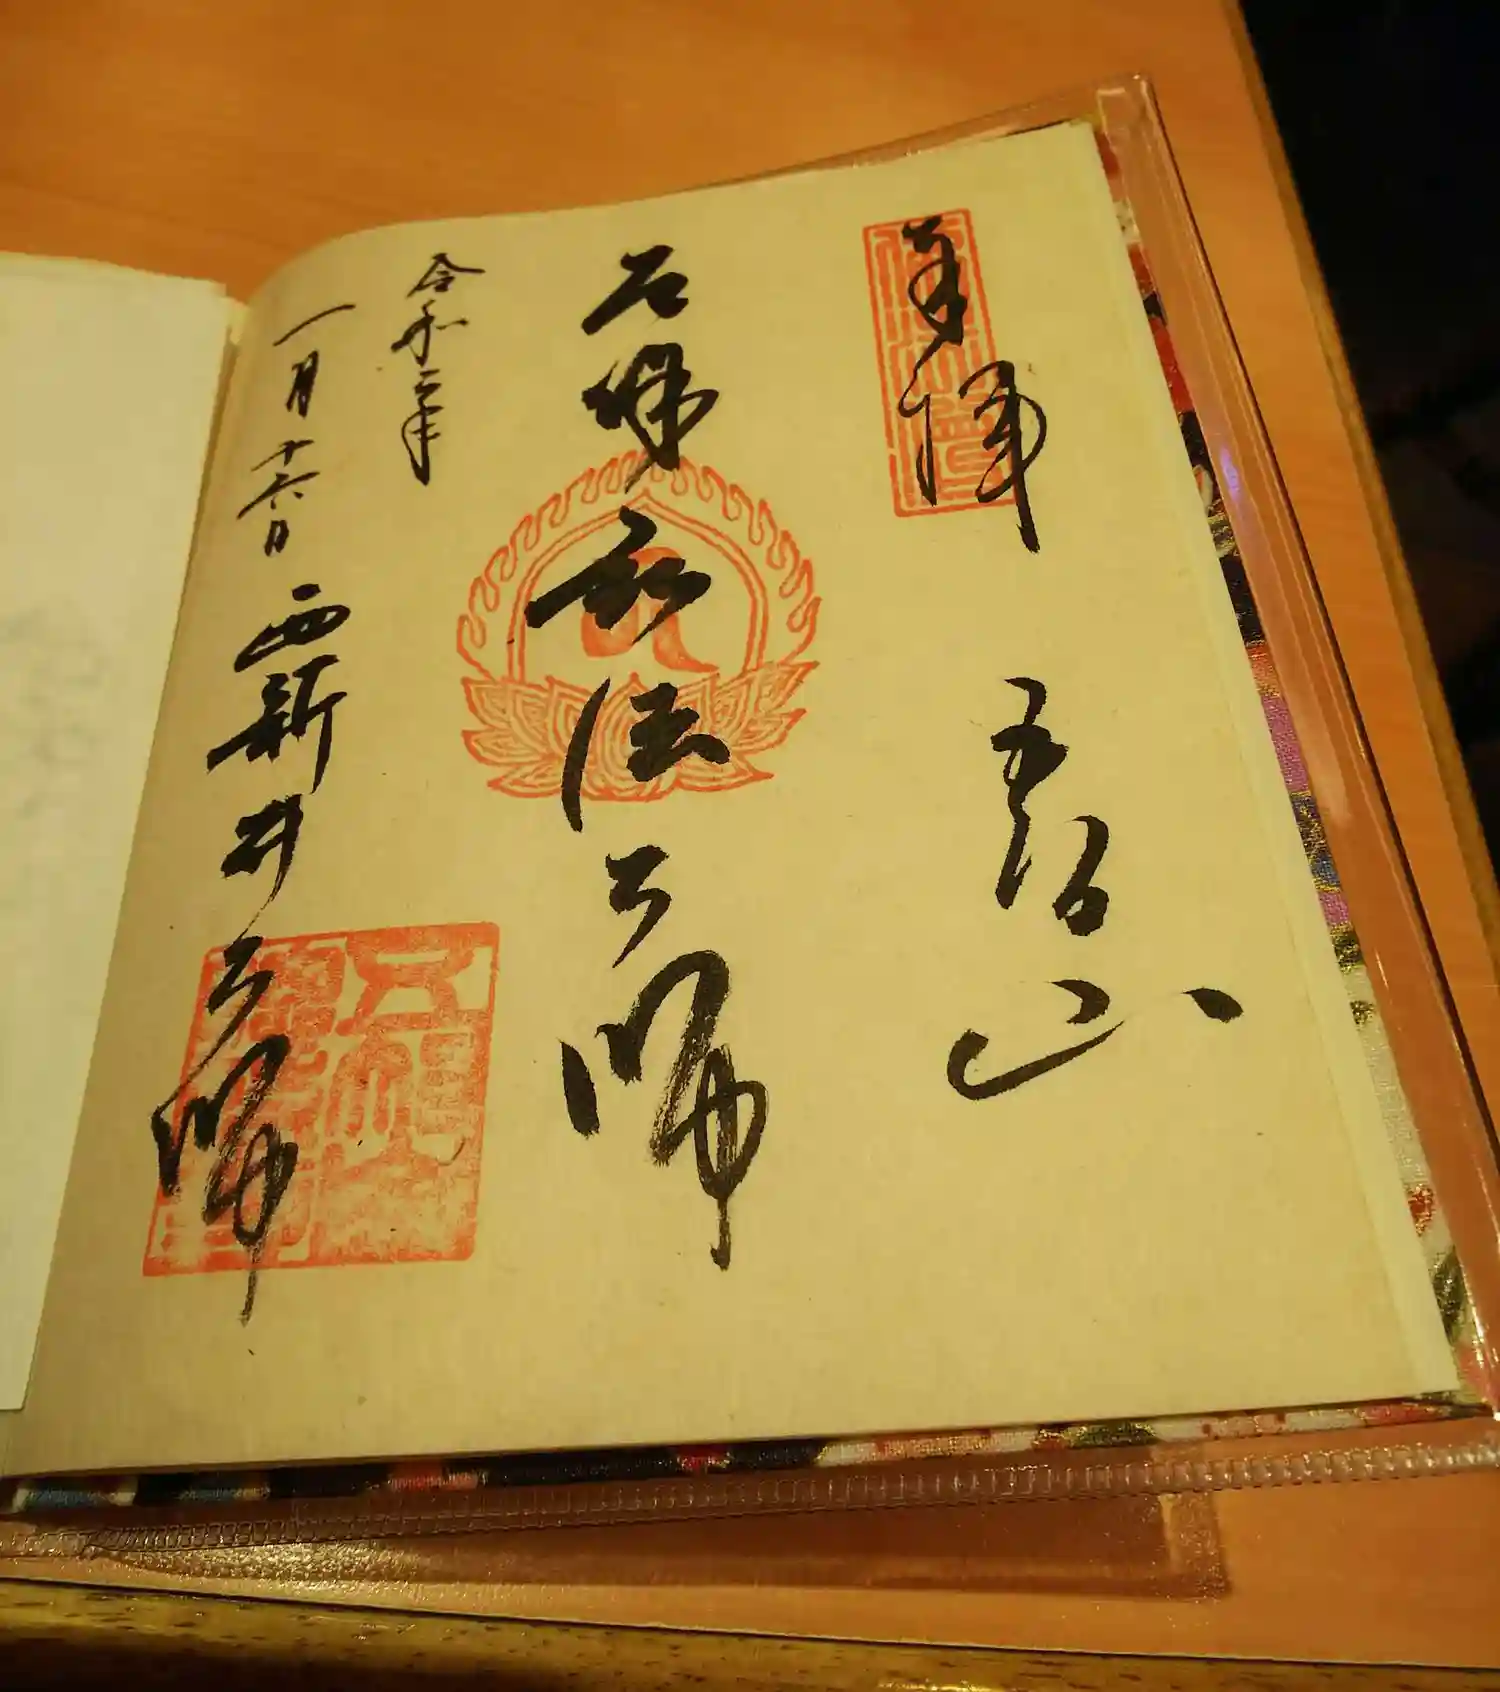 奉拝
五智山
厄除弘法大師
令和二年
一月十六日
西新井大師